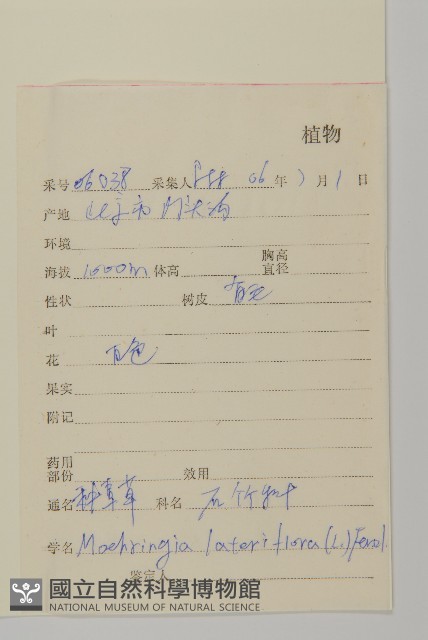 植物
采号 06038 采集人 06 年 7 月 1 日
产地 北京市 门头沟
环境
海拔 1000m 体高 胸高直径
性状 树皮 有毛
叶
花 白色
果实
附记
药用部份 效用
通名 种草草 科名 石竹科
学名 Moehringia lateriflora (L.) Fenzl.
鉴定人
國立自然科學博物館
NATIONAL MUSEUM OF NATURAL SCIENCE